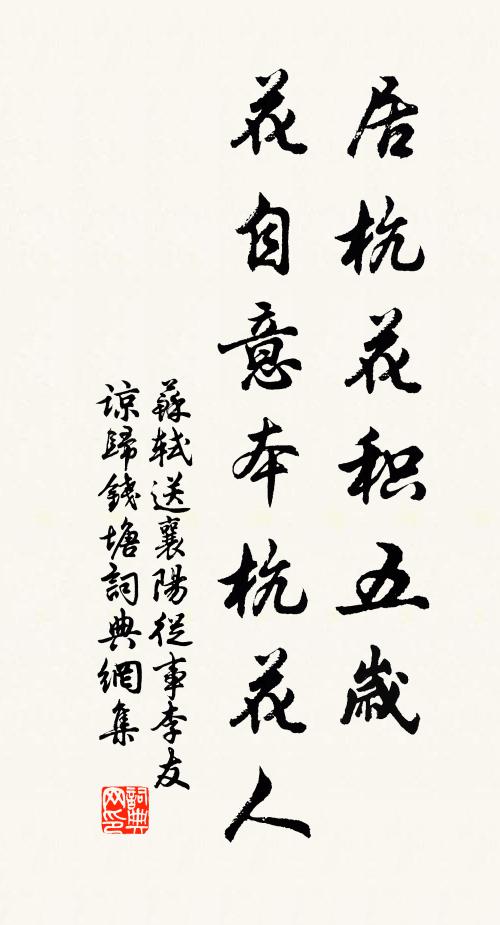 居杭花积五歲
花自意本杭花人
蘇軾送襄陽從事李友
諒歸錢塘詞典網集
詞典网印